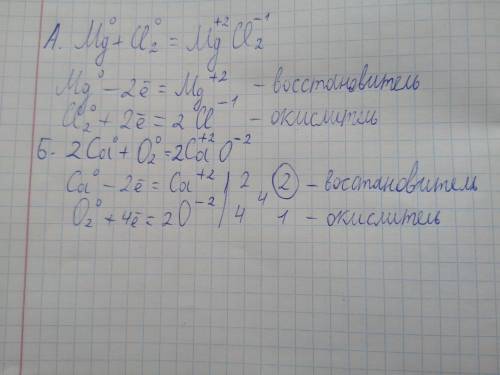 А. Mg⁰ + Cl₂⁰ = Mg⁺² Cl₂⁻¹
Mg⁰ - 2ē = Mg⁺² - восстановитель
Cl₂⁰ + 2ē = 2 Cl⁻¹ - окислитель
Б. 2Ca⁰ + O₂⁰ = 2Ca⁺² O⁻²
Ca⁰ - 2ē = Ca⁺² | 2 4 2 - восстановитель
O₂⁰ + 4ē = 2O⁻² | 4 1 - окислитель